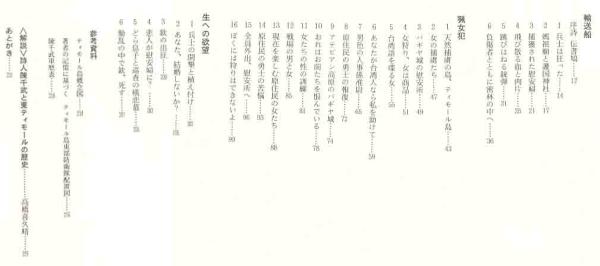 輸送船
序詩 伝書鳩……12
1 兵士は狂った……14
2 媽祖廟と護国神社……17
3 捕獲された慰安婦……21
4 飛び散る血と肉片……25
5 跳びはねる銃弾……31
6 負傷者とともに密林の中へ……36
猟女犯
1 天然要塞の島、ティモール島……43
2 女の捕虜たち……47
3 バギヤ城の慰安所……49
4 女狩り、女は商品……51
5 台湾語を喋る女……55
6 あなたが台湾人なら私を助けて……59
7 男色の人事係准尉……65
8 原住民の勇士の報復……72
9 アナビアン高原のバギヤ城……74
10 おれはお前たちを恨んでいる……78
11 女たちの性の訓練……81
12 戦場の男と女……85
13 現在を楽しむ原住民の女たち……88
14 原住民の勇士の苦悩……93
15 全員外出、慰安所へ……96
16 ぼくには狩りはできないよ……99
生への欲望
1 兵士の開拓と植え付け
2 あなた、結婚しないか?
3 欲の出征
4 恋人が慰安婦に?
5 どら息子と巡査の横恋慕
6 動乱の中で欲、死す
参考資料
ティモール島全図
著者の記憶に基づく
ティモール島東部防衛隊配置図
陳千武略歴表
〈解説〉詩人陳千武と東ティモールの歴史……高橋喜久晴
あとがき